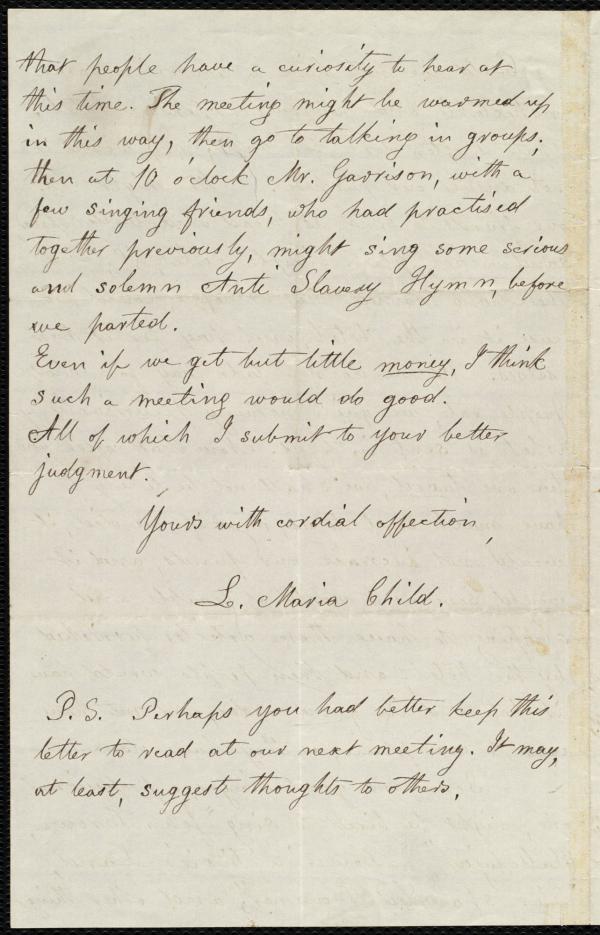 that people have a curiosity to hear at
this time. The meeting might be warmed up
in this way, then go to talking in groups;
then at 10 o'clock Mr. Garrison, with a
few singing friends, who had practised
together previously, might sing some serious
and solemn Anti Slavery Hymn, before
we parted.
Even if we get but little money, I think
such a meeting would do good.
All of which I submit to your better
judgment.
Yours with cordial affection,
L. Maria Child.
P.S. Perhaps you had better keep this
letter to read at our next meeting. It may,
at least, suggest thoughts to others.